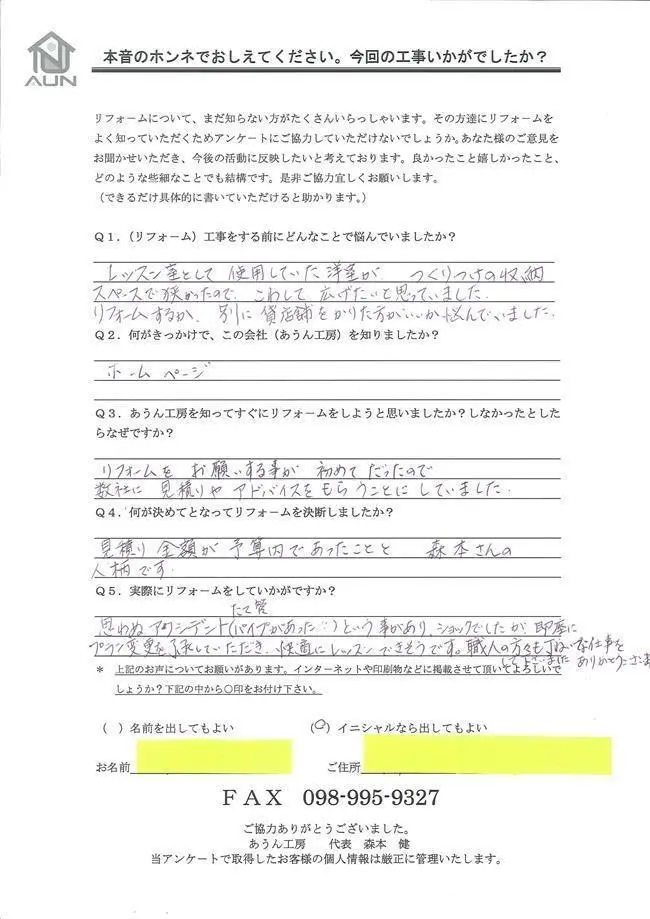 AUN
本音のホンネでおしえてください。今回の工事いかがでしたか？
リフォームについて、まだ知らない方がたくさんいらっしゃいます。その方達にリフォームを
よく知っていただくためアンケートにご協力していただけないでしょうか。あなた様のご意見を
お聞かせいただき、今後の活動に反映したいと考えております。良かったこと嬉しかったこと、
どのような些細なことでも結構です。是非ご協力宜しくお願いします。
（できるだけ具体的に書いていただけると助かります。）
Ｑ１．（リフォーム）工事をする前にどんなことで悩んでいましたか？
レッスン室として 使用していた 洋室が つくりつけの収納
スペースで狭かったので、こわして 広げたいと思っていました。
リフォームするか、別に 貸店舗をかりた方がいいか悩んでいました。
Ｑ２．何がきっかけで、この会社（あうん工房）を知りましたか？
ホームページ
Ｑ３．あうん工房を知ってすぐにリフォームをしようと思いましたか？しなかったとした
らなぜですか？
リフォームを お願いする事が 初めてだったので
数社に 見積りや アドバイスをもらうことにしていました。
Ｑ４．何が決めてとなってリフォームを決断しましたか？
見積り金額が予算内であったことと 森本さんの
人柄です。
Ｑ５．実際にリフォームをしていかがですか？
たて管
思わぬアクシデント（パイプがあった…）という事があり、ショックでしたが 即座に
プラン変更を了承していただき、快適にレッスンできそうです。職人の方々も丁ねいな仕事を
して下さいました ありがとうござ
＊ 上記のお声についてお願いがあります。インターネットや印刷物などに掲載させて頂いてよろしいで
しょうか？下記の中から〇印をお付け下さい。
（ ）名前を出してもよい （〇）イニシャルなら出してもよい
お名前 ご住所
ＦＡＸ 098-995-9327
ご協力ありがとうございました。
あうん工房 代表 森本 健
当アンケートで取得したお客様の個人情報は厳正に管理いたします。